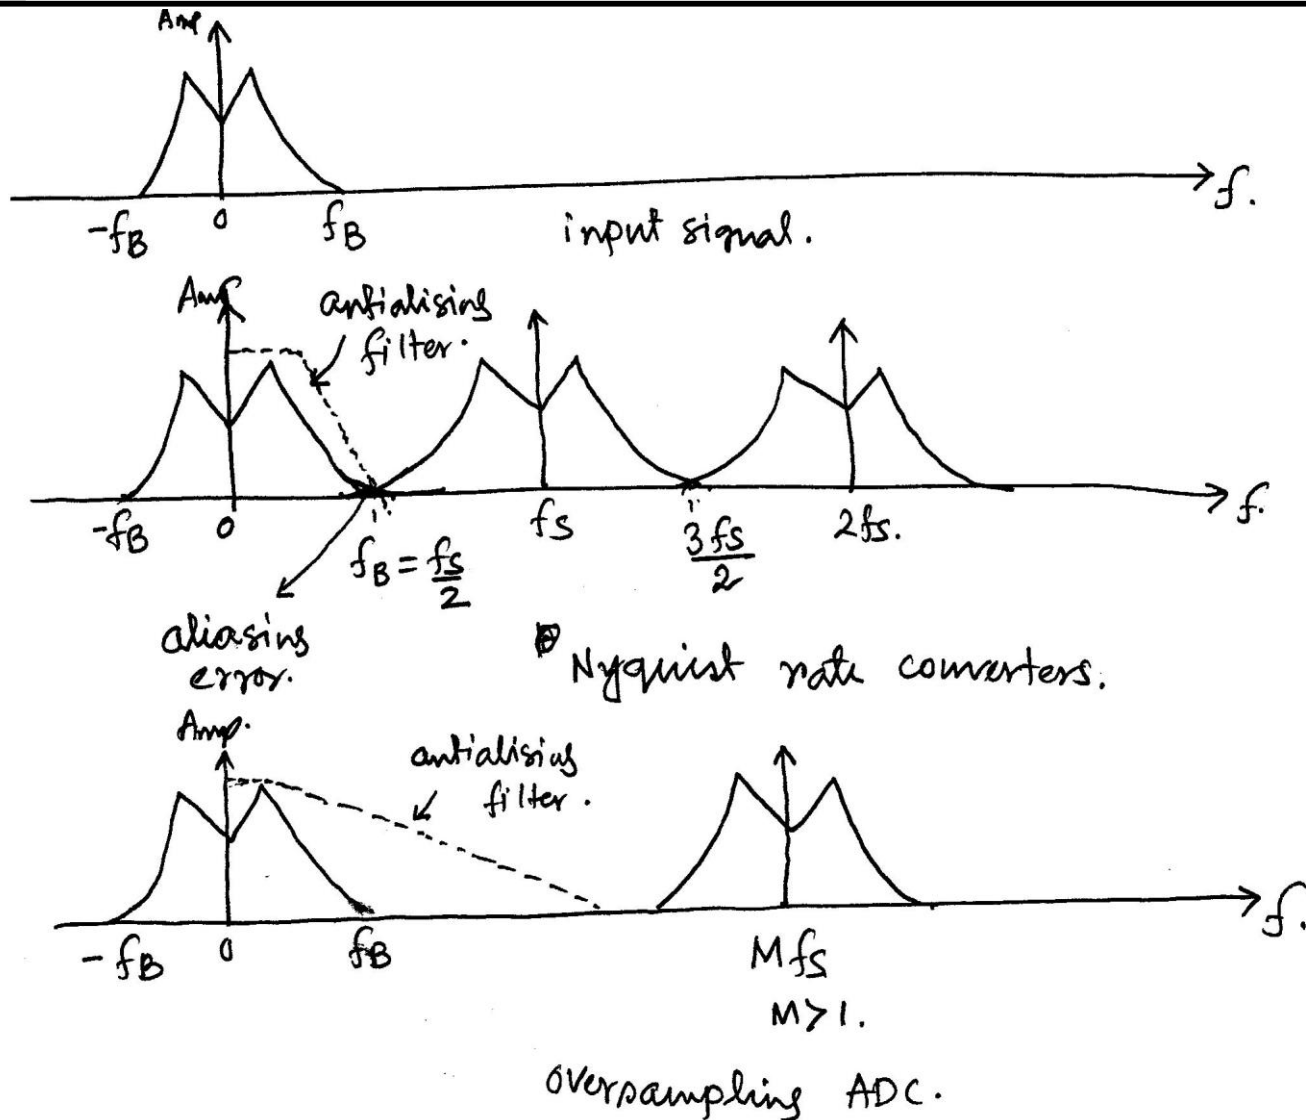 Amp
f.
-fB
0
fB
input signal.
Amp
antialising
filter.
f.
-fB
0
fB = fs/2
fs
3fs/2
2fs.
aliasing
error.
Nyquist rate converters.
Amp.
antialising
filter.
f.
-fB
0
fB
Mfs
M>1.
oversampling ADC.